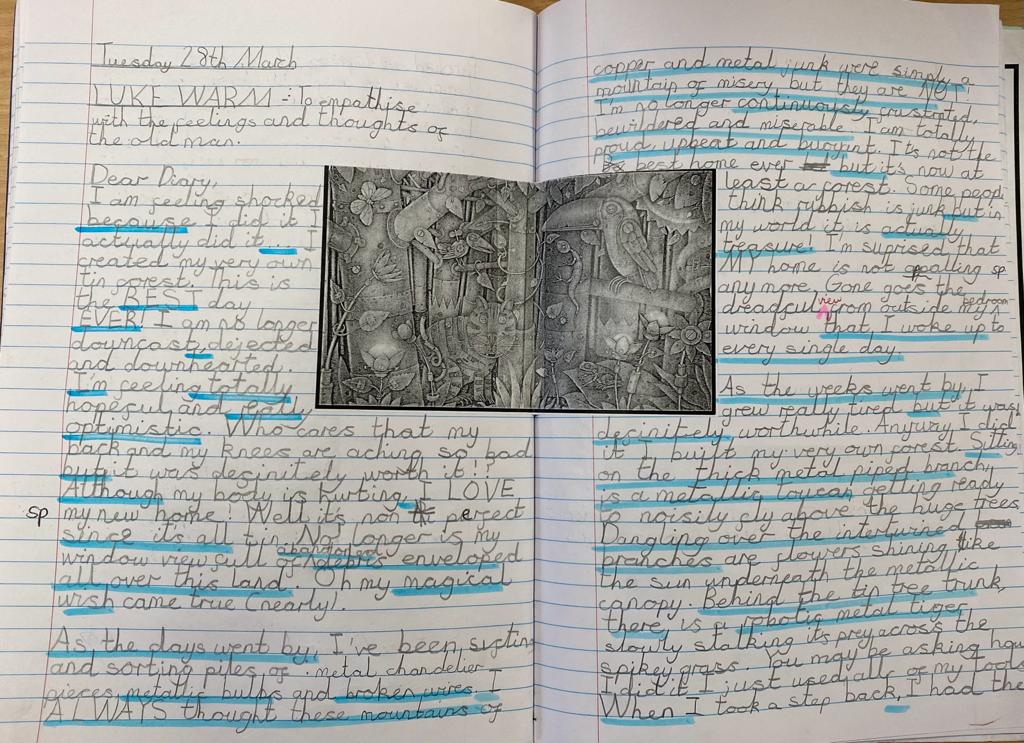 Tuesday 28th March
LUKE WARM - : To empathise
with the feelings and thoughts of
the old man.
Dear Diary,
I am feeling shocked
because I did it I
actually did it.... I
created my very own
tin forest. This is
the BEST day
EVER! I am no longer
downcast, dejected
and downhearted.
I'm feeling totally
hopeful and really
optimistic. Who cares that my
back and my knees are aching so bad
but it was desinitely worth it!?
Although my body is hurting, I LOVE
sp my new home! Well it's non perect
since it's all tin. No longer is my
window view full of debris enveloped
all over this land. Oh my magical
wish came true (nearly).
As the days went by, I've been sifting
and sorting piles of metal chandelier
pieces, metallic bulbs and broken wires. I
ALWAYS thought these mountains of
copper and metal junk were simply a
mountain of misery but they are NOT!
I'm no longer continuously, frustrated,
bewildered and miserable. I am totally
proud, upbeat and buoyint. It's not the
best home ever but it's now at
least a forest. Some peopl
think rubbish is junk but in
my world it is actually
treasure! I'm suprised that
MY home is not palling sp
any more, Gone goes the
dreadful view from outside my bedroom
window that, I woke up to
every single day.
As the weeks went by, I
grew really tired but it was
desinitely worthwhile. Anyway I did
it I built my very own forest. Sitting
on the thick metal piped branchy
is a metallic toucan getting ready
to noisily fly above the huge trees.
Dangling over the intertwined
branches are flowers shining like
the sun underneath the metallic
canopy. Behind the tin tree trunk,
there is a robotic metal tiger
slowly stalking its prey across the
spikey grass. You may be asking how
I did it I just used all of my tools
When I took a step back, I had the